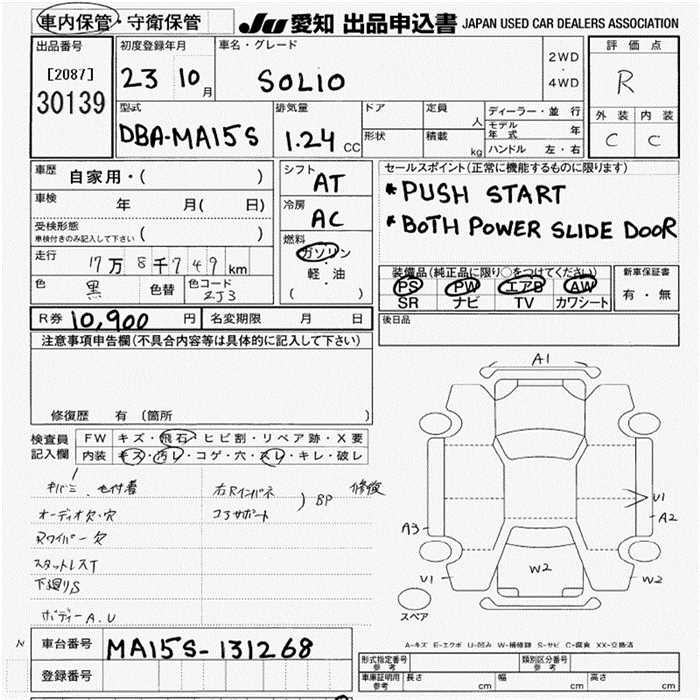 車内保管・守衛保管
JU 愛知 出品申込書 JAPAN USED CAR DEALERS ASSOCIATION
出品番号
[2087]
30139
初度登録年月
23 10月
車名・グレード
SOLIO
2WD
・
4WD
評価点
R
外装 内装
C C
型式
DBA-MA15S
排気量
1.24 CC
ドア
形状
定員
人
積載
kg
ディーラー・並行
モデル年式 年
ハンドル 左・右
車歴
自家用・( )
車検
年 月( 日)
受検形態
車検付きのみ記入して下さい ( )
走行
17万8千749km
色
黒
色替
色コード
ZJ3
シフト
AT
冷房
AC
燃料
ガソリン
・
軽・油
( )
セールスポイント(正常に機能するものに限ります)
*PUSH START
*BOTH POWER SLIDE DOOR
装備品(純正品に限り○をつけてください)
PS PW エアB AW
SR ナビ TV カワシート
新車保証書
有・無
R券 10,900 円
名変期限 月 日
後日品
注意事項申告欄(不具合内容等は具体的に記入して下さい)
修復歴 有 (箇所 )
検査員
記入欄
FW キズ・飛石・ヒビ割・リペア跡・X要
内装 キズ・汚レ・コゲ・穴・スレ・キレ・破レ
キバミ、色付着
オーディオ欠・穴
Rワイパー欠
スタットレスT
下廻りS
ボディーA.U
右Rインパネ
コアサポート
) BP 修復
A1
U1
A2
A3
U1
W2
W2
スペア
A-キズ E-エクボ U-凹み W-補修跡 S-サビ C-腐食 XX-交換済
N
車台番号
MA15S-131268
登録番号
形式指定番号
参考
類別区分番号
参考
車庫証明用
参考
長さ cm
幅 cm
高さ cm